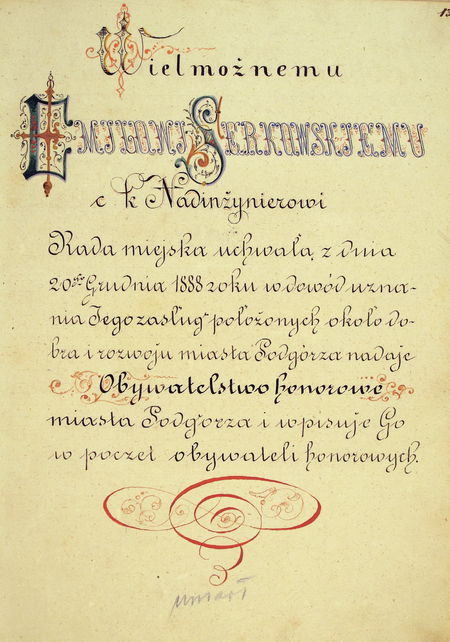 13
Wielmożnemu
EMILOWI SERKOWSKIEMU
c k Nadinżynierowi
Rada miejska uchwałą z dnia
20go Grudnia 1888 roku w dowód uzna-
nia Jego zasług położonych około do-
bra i rozwoju miasta Podgórza nadaje
Obywatelstwo honorowe
miasta Podgórza i wpisuje Go
w poczet obywateli honorowych.
umarł